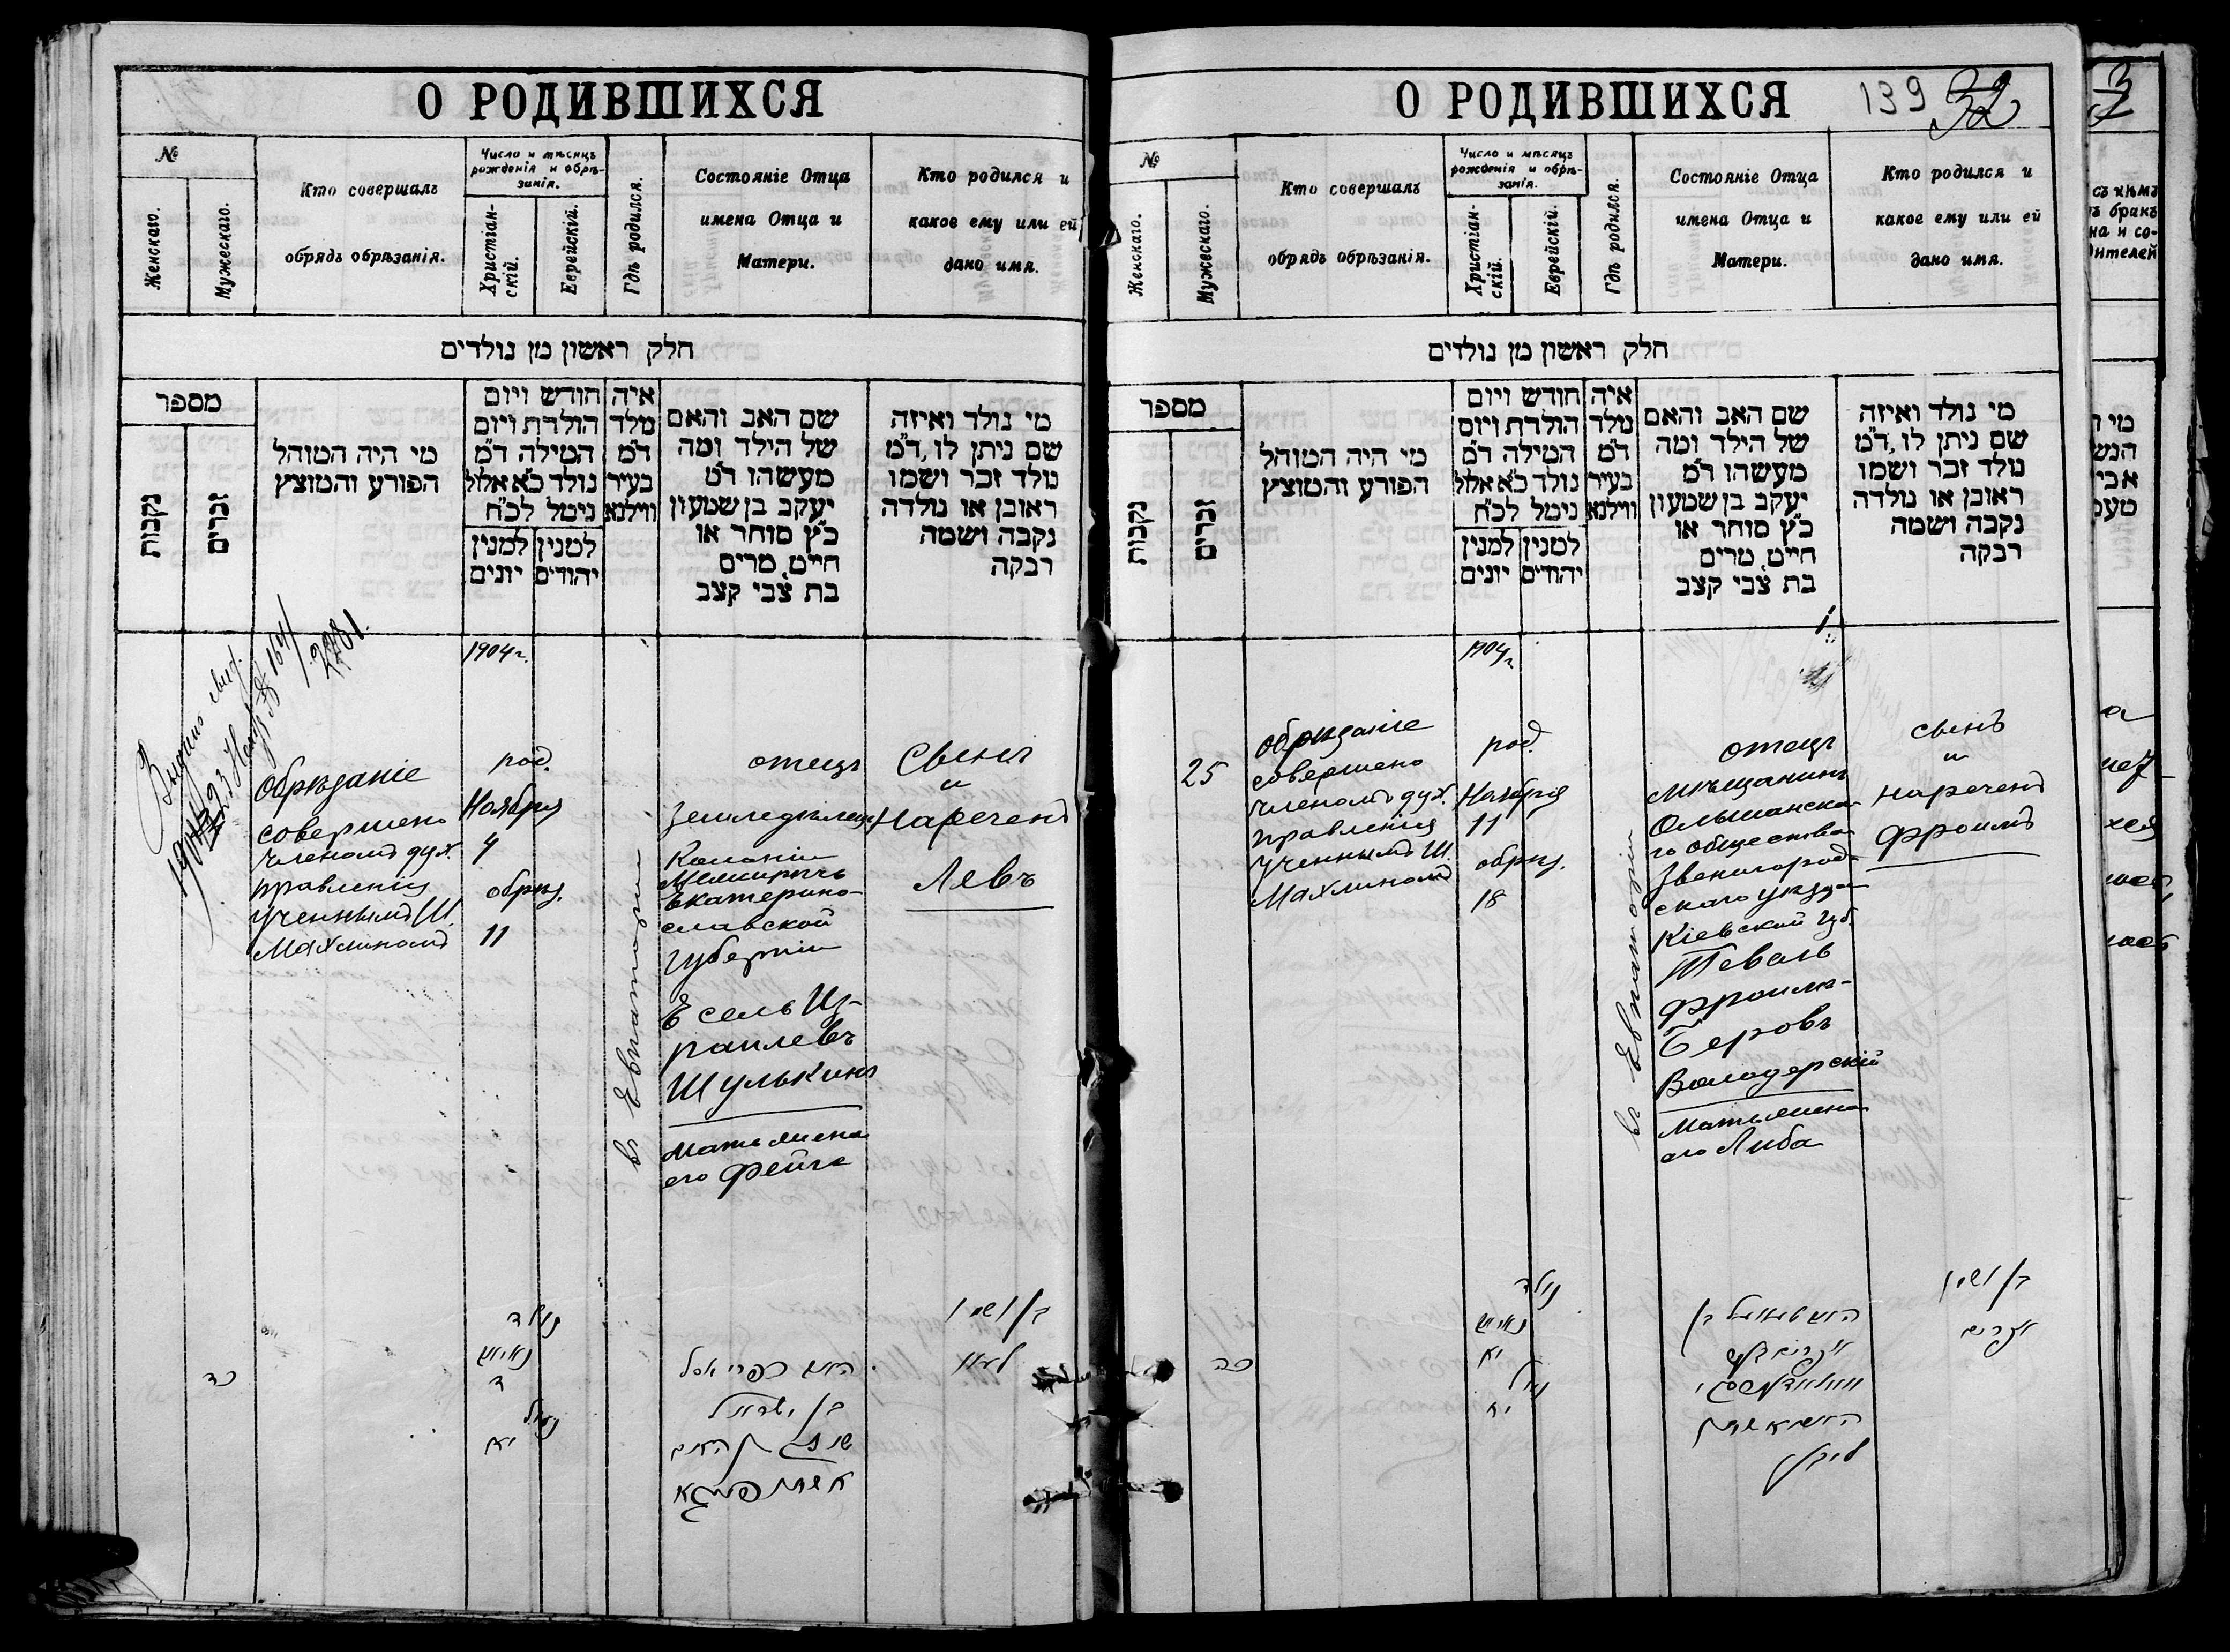 О РОДИВШИХСЯ
№
Женскаго.
Мужескаго.
Кто совершалъ
обрядъ обрѣзанія.
Число и мѣсяцъ
рожденія и обрѣ-
занія.
Христіан-
скій.
Еврейскій.
Гдѣ родился.
Состояніе Отца
имена Отца и
Матери.
Кто родился и
какое ему или ей
дано имя.
חלק ראשון מן נולדים
מספר
נקבות
זכרים
מי היה המוהל
הפורע והמוצץ
חודש ויום
הולדת ויום
המילה ד"מ
נולד כ"א אלול
נימל לכ"ח
למנין יהודים
למנין יונים
איה
נולד
ד"מ
בעיר
ווילנא
שם האב והאם
של הילד ומה
מעשהו ד"מ
יעקב בן שמעון
כ"ץ סוחר או
חייט, מרים
בת צבי קצב
מי נולד ואיזה
שם ניתן לו, ד"מ
נולד זכר ושמו
ראובן או נולדה
נקבה ושמה
רבקה
2281
1904 г.
Обрѣзаніе
совершено
членомъ дух.
правленія
ученнымъ Ш.
Махлиномъ
род.
Ноября
4
обрѣз.
11
въ Евпаторіи
отецъ
Земледѣлецъ
Колоніи
Екатерино-
славской
губерніи
Есель Из-
раилевъ
Шулькинъ
Мать жена
его Фейга
Сынъ
и
Нареченъ
Левъ
כד
נולד
ד
נימול
יא
בן ישראל
בן ושמו
О РОДИВШИХСЯ
139 32
№
Женскаго.
Мужескаго.
Кто совершалъ
обрядъ обрѣзанія.
Число и мѣсяцъ
рожденія и обрѣ-
занія.
Христіан-
скій.
Еврейскій.
Гдѣ родился.
Состояніе Отца
имена Отца и
Матери.
Кто родился и
какое ему или ей
дано имя.
חלק ראשון מן נולדים
מספר
נקבות
זכרים
מי היה המוהל
הפורע והמוצץ
חודש ויום
הולדת ויום
המילה ד"מ
נולד כ"א אלול
נימל לכ"ח
למנין יהודים
למנין יונים
איה
נולד
ד"מ
בעיר
ווילנא
שם האב והאם
של הילד ומה
מעשהו ד"מ
יעקב בן שמעון
כ"ץ סוחר או
חייט, מרים
בת צבי קצב
מי נולד ואיזה
שם ניתן לו, ד"מ
נולד זכר ושמו
ראובן או נולדה
נקבה ושמה
רבקה
1904 г.
25
Обрѣзаніе
совершено
членомъ дух.
правленія
ученнымъ Ш.
Махлиномъ
род.
Ноября
11
обрѣз.
18
въ Евпаторіи
отецъ
Мѣщанинъ
Ольшанска-
го общества
Звенигород-
скаго уѣзда
Кіевской губ.
Теваль
Фроимъ-
Беровъ
Володерскій
Мать жена
его Либа
сынъ
и
нареченъ
Фроимъ
כה
נולד
יא
בן ושמו
אפרים
съ кѣмъ
ъ бракъ
на и со-
дителей